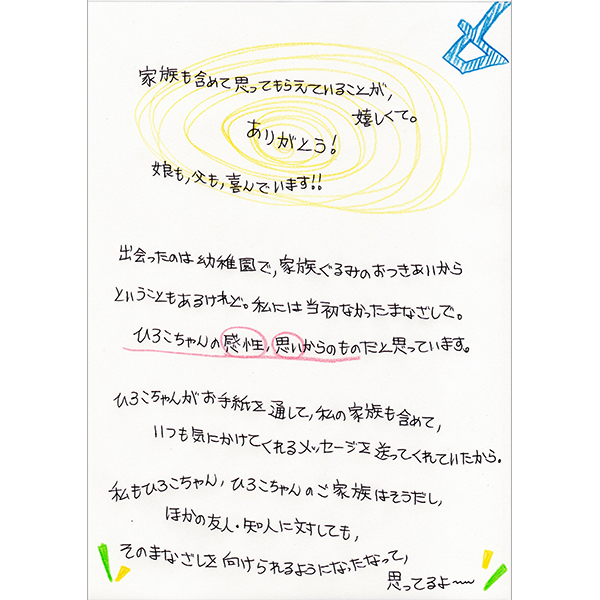 家族も含めて思ってもらえていることが,
嬉しくて。
ありがとう!
娘も,父も,喜んでいます!!
出会ったのは幼稚園で,家族ぐるみのおつきあいから
ということもあるけれど。私には当初なかったまなざしで。
ひろこちゃんの感性,思いからのものだと思っています。
ひろこちゃんがお手紙を通して,私の家族も含めて,
いつも気にかけてくれるメッセージを送ってくれていたから.
私もひろこちゃん,ひろこちゃんのご家族はそうだし,
ほかの友人・知人に対しても,
そのまなざしを向けられるようになったなって,
思ってるよ〜〜